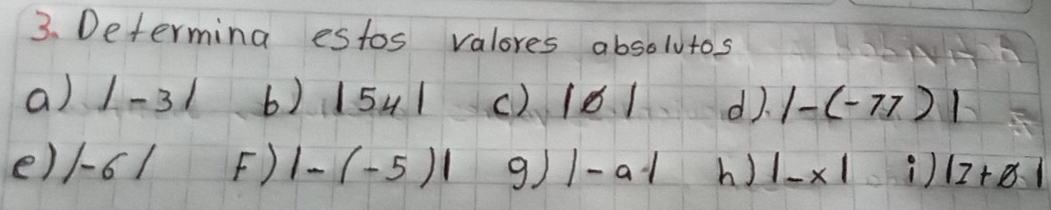 3. Determina estos valores absolutos
a) |-3| b) |54| c) |0| d) |-(-77)|
e) |-6| F) |-(-5)| g) |-a| h) |-x| i) |7+0|